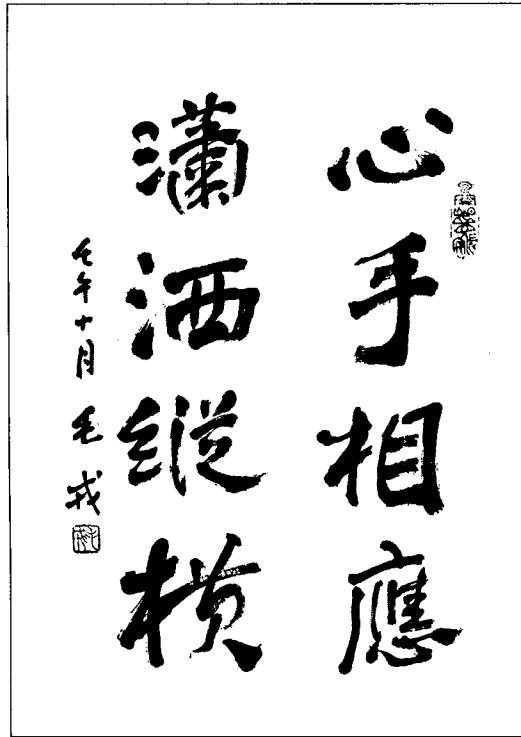 心手相應
瀟洒縱橫
壬午十月 毛戎